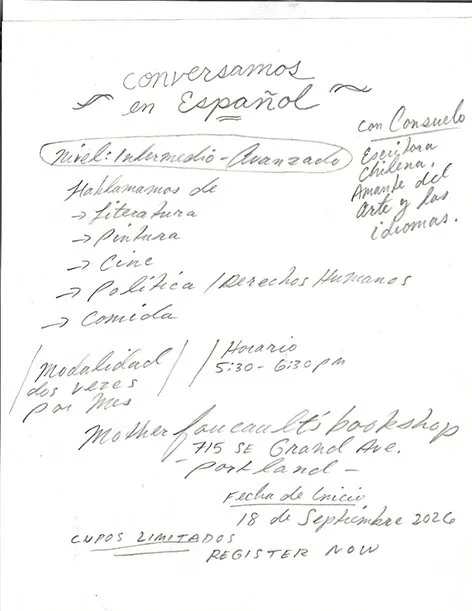 conversamos
en Español
con Consuelo
Escritora
Chilena.
Amante del
arte y los
idiomas.
Nivel: Intermedio - Avanzado
Hablamamos de
→ Literatura
→ Pintura
→ Cine
→ Política / Derechos Humanos
→ Comida
Modalidad
dos vezes
por Mes
Horario
5:30 - 6:30 pm
Mother foucault's bookshop
715 SE Grand Ave.
- Portland -
Fecha de Inicio
18 de Septiembre 2026
CUPOS LIMITADOS
REGISTER NOW